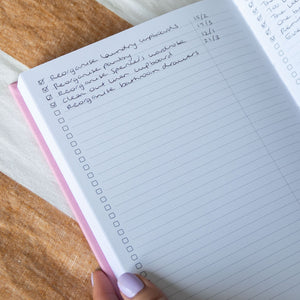 Reorganise laundry cupboards 15/2
Reorganise pantry 17/2
Reorganise Spencer's wardrobe 12/1
Clean out linen cupboard 21/2
Reorganise bathroom drawers